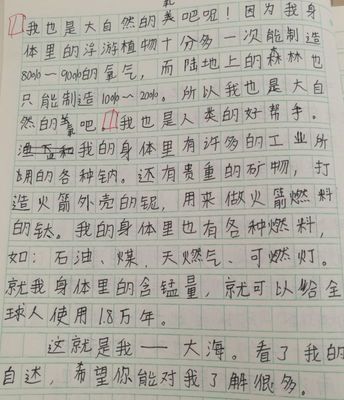 我也是大自然的氧吧呢！因为我身
体里的浮游植物十分多一次能制造
80%~90%的氧气，而陆地上的森林也
只能制造10%~20%。所以我也是大自
然的氧吧。我也是人类的好帮手。
我的身体里有许多的工业所
用的各种钠。还有贵重的矿物，打
造火箭外壳的铌，用来做火箭燃料
的钛。我的身体里也有各种燃料，
如：石油、煤、天燃气、可燃灯。
就我身体里的含锰量，就可以给全
球人使用1.8万年。
这就是我——大海。看了我的
自述，希望你能对我了解很多。